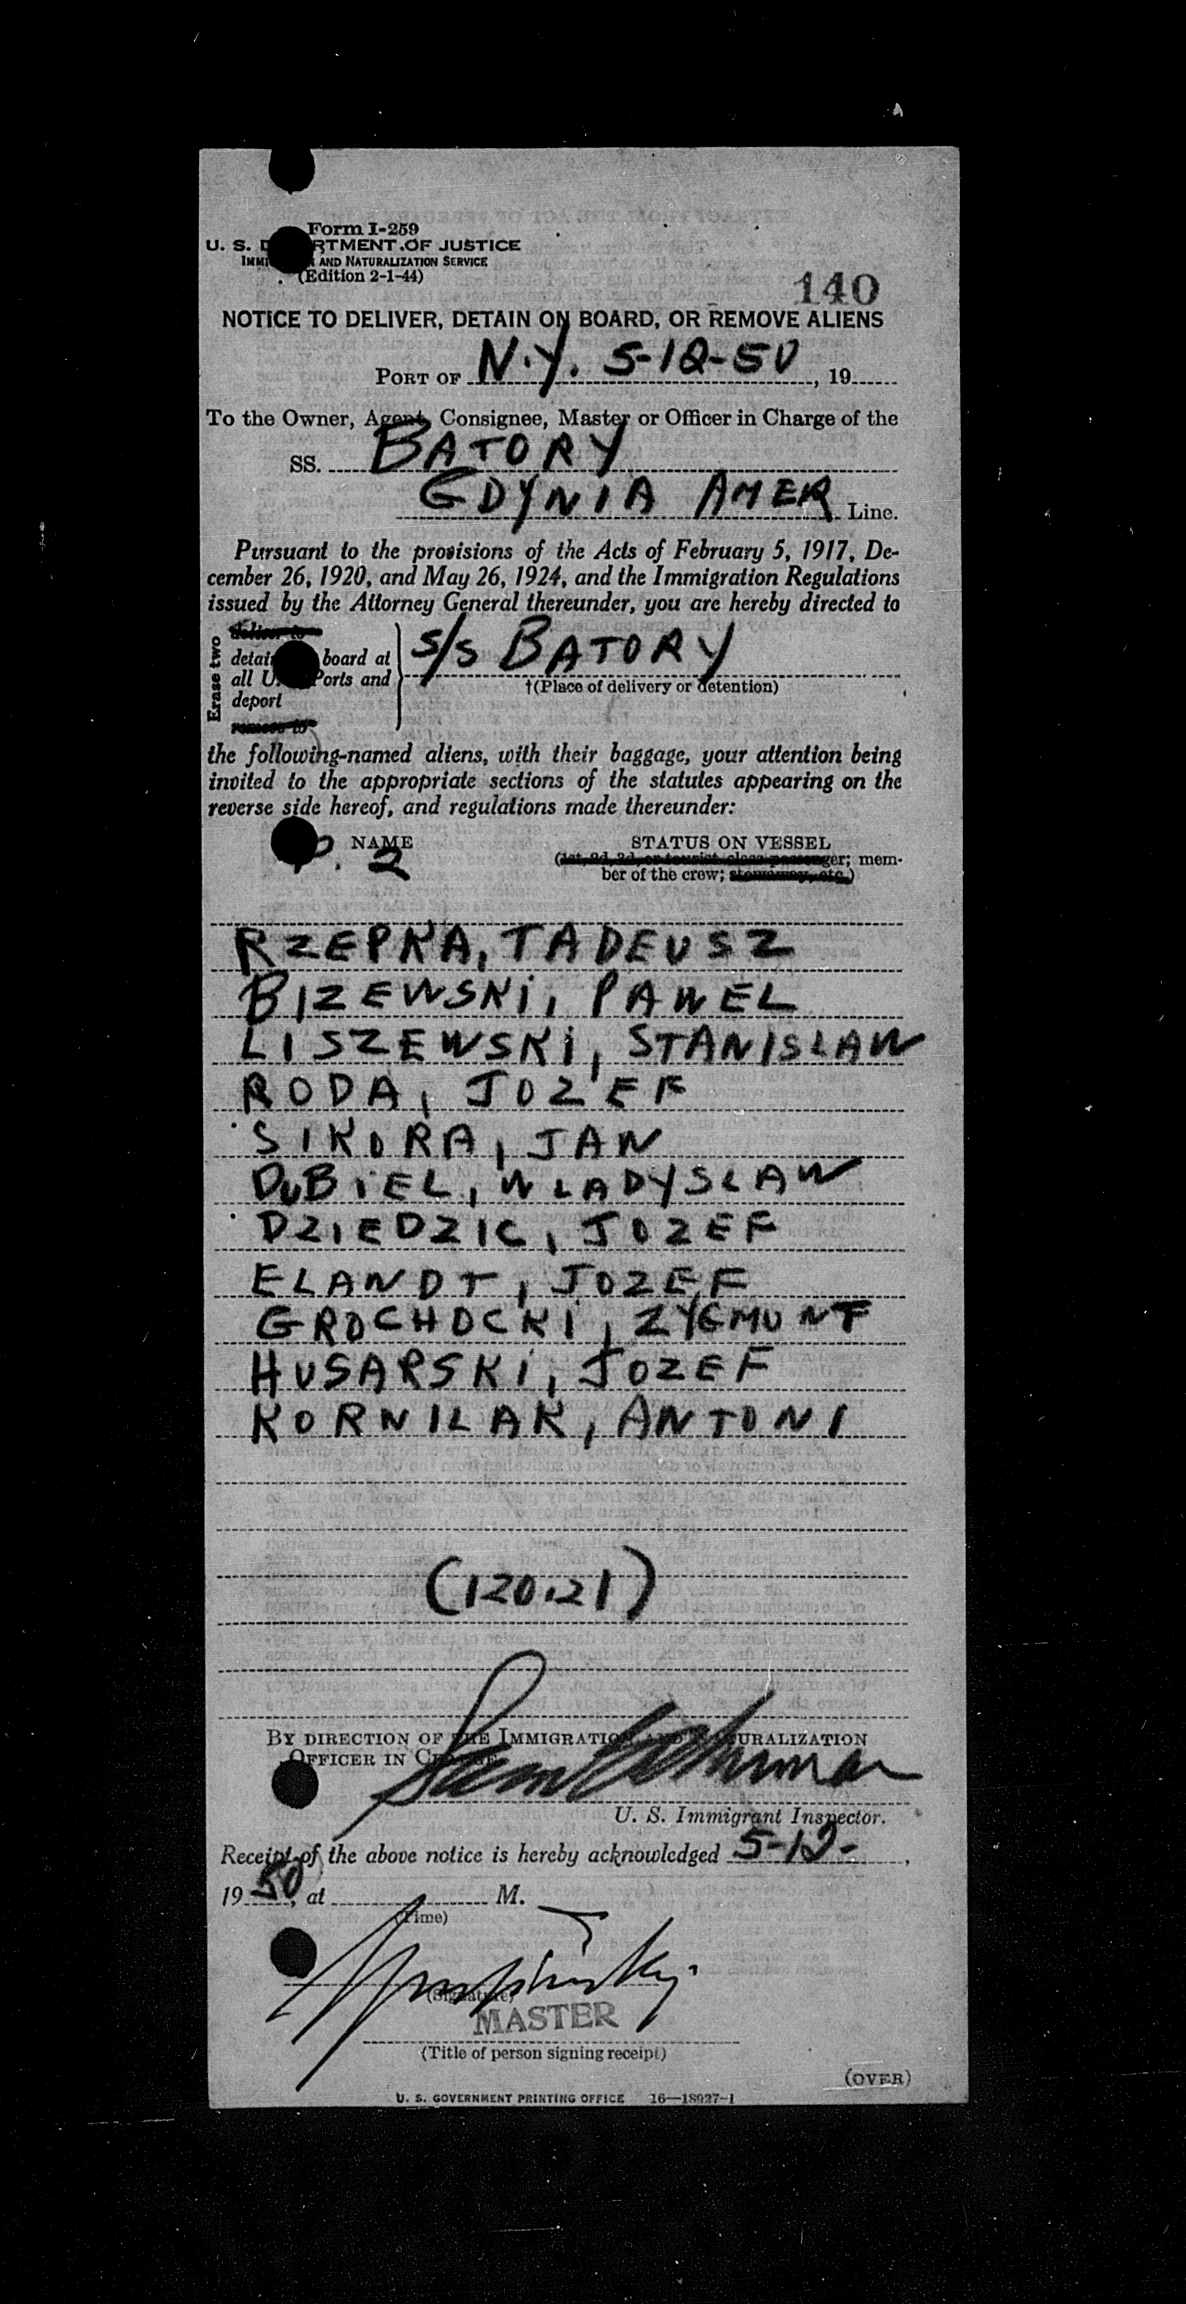 Form I-259
U. S. D RTMENT OF JUSTICE
IMMI AND NATURALIZATION SERVICE
(Edition 2-1-44)
140
NOTICE TO DELIVER, DETAIN ON BOARD, OR REMOVE ALIENS
PORT OF N.Y. 5-12-50, 19
To the Owner, Agent, Consignee, Master or Officer in Charge of the
SS. BATORY
GDYNIA AMER Line.
Pursuant to the provisions of the Acts of February 5, 1917, De-
cember 26, 1920, and May 26, 1924, and the Immigration Regulations
issued by the Attorney General thereunder, you are hereby directed to
Erase two
deliver to
detain board at
all U. Ports and
deport
remove to
S/S BATORY
†(Place of delivery or detention)
the following-named aliens, with their baggage, your attention being
invited to the appropriate sections of the statutes appearing on the
reverse side hereof, and regulations made thereunder:
NAME STATUS ON VESSEL
P. 2 (1st, 2d, 3d, or tourist class passenger; mem-
ber of the crew; stowaway, etc.)
RZEPKA, TADEUSZ
BIZEWSKI, PAWEL
LISZEWSKI, STANISLAW
RODA, JOZEF
SIKORA, JAN
DUBIEL, WLADYSLAW
DZIEDZIC, JOZEF
ELANDT, JOZEF
GROCHOCKI, ZYGMUNT
HUSARSKI, JOZEF
KORNILAK, ANTONI
(120.21)
BY DIRECTION OF THE IMMIGRATION AND NATURALIZATION
OFFICER IN CHARGE
U. S. Immigrant Inspector.
Receipt of the above notice is hereby acknowledged 5-12-,
1950, at M.
(Time)
(Signature)
MASTER
(Title of person signing receipt)
(OVER)
U. S. GOVERNMENT PRINTING OFFICE 16—18927-1